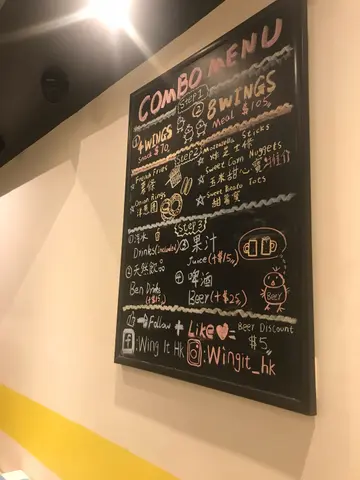 COMBO MENU
Step 1
① 4 WINGS
Snack $70
② 8 WINGS
Meal $105
Step 2
☆ French Fries
薯條
☆ Onion Rings
洋蔥圈
☆ Mozzarella Sticks
炸芝士條
☆ Sweet Corn Nuggets
玉米甜心寶
☆ Sweet Potato Tots
甜薯寶
Step 3
① 汽水
Drinks (included)
② 天然飲品
Ben Drinks
(+$15)
③ 果汁
Juice (+$15)
④ 啤酒
Beer (+$25)
BEER
Follow + Like
Beer Discount
$5
f : Wing It Hk
: Wingit_hk